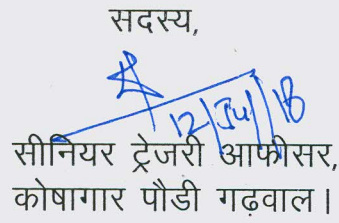 सदस्य,
12/Jul/18
सीनियर ट्रेजरी आफीसर,
कोषागार पौडी गढ़वाल।